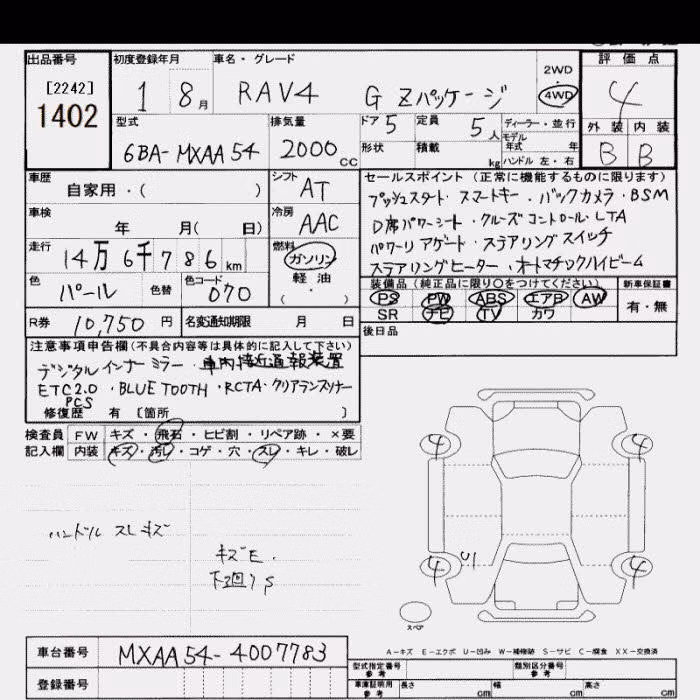 出品番号 初度登録年月 車名・グレード 評価点
[2242]
1402
1 8月 RAV4 G Zパッケージ 2WD 4WD 4
型式 排気量 ドア 5 定員 5人 ディーラー・並行 外装 内装
モデル年式 年
6BA-MXAA54 2000cc 形状 積載 kg ハンドル 左・右 B B
車歴 自家用・( ) シフト AT セールスポイント(正常に機能するものに限ります)
プッシュスタート・スマートキー・バックカメラ・BSM
車検 年 月(日) 冷房 AAC D席パワーシート・クルーズコントロール・LTA
パワーリアゲート・ステアリングスイッチ
走行 14万6千786km 燃料 ガソリン 軽油 ( ) ステアリングヒーター・オートマチックハイビーム
色 パール 色替 色コード 070 装備品(純正品に限り○をつけてください) 新車保証書
PS PW ABS エアB AW 有・無
SR ナビ TV カワ
R券 10,750円 名変通知期限 月 日 後日品
注意事項申告欄(不具合内容等は具体的に記入して下さい)
デジタルインナーミラー・車内接近通報装置
ETC2.0・BLUETOOTH・RCTA・クリアランスソナー
PCS
修復歴 有 [箇所 ]
検査員 FW キズ・飛石・ヒビ割・リペア跡・×要
記入欄 内装 キズ・汚レ・コゲ・穴・スレ・キレ・破レ
4 4
ハンドル スレキズ
キズE.
下廻りS
4 U1 4
スペア
A−キズ E−エクボ U−凹み W−補修跡 S−サビ C−腐食 XX−交換済
車台番号 MXAA54-4007783
型式指定番号 参考 類別区分番号 参考
登録番号 車庫証明用 参考 長さ cm 幅 cm 高さ cm